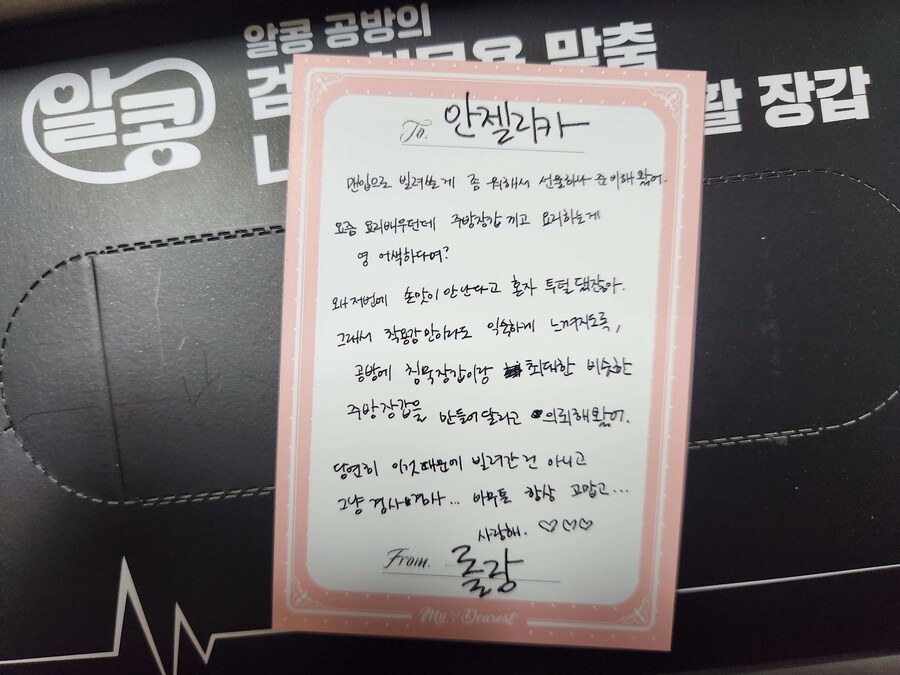 알콩 공방의
알콩
맞춤
장갑
To. 안젤리카
맨입으로 빌려쓰는게 좀 뭐해서 선물하나 준비해 왔어.
요즘 요리배우던데 주방장갑 끼고 요리하는게
영 어색하다며?
왜 저번에 손맛이 안난다고 혼자 투덜 댔잖아.
그래서 착용감 만이라도 익숙하게 느껴지도록,
공방에 침묵장갑이랑 최대한 비슷한
주방장갑을 만들어달라고 의뢰해 왔어.
당연히 이것때문에 빌려간 건 아니고
그냥 겸사겸사... 아무튼 항상 고맙고...
사랑해. ♡♡♡
From. 롤랑
My Dearest